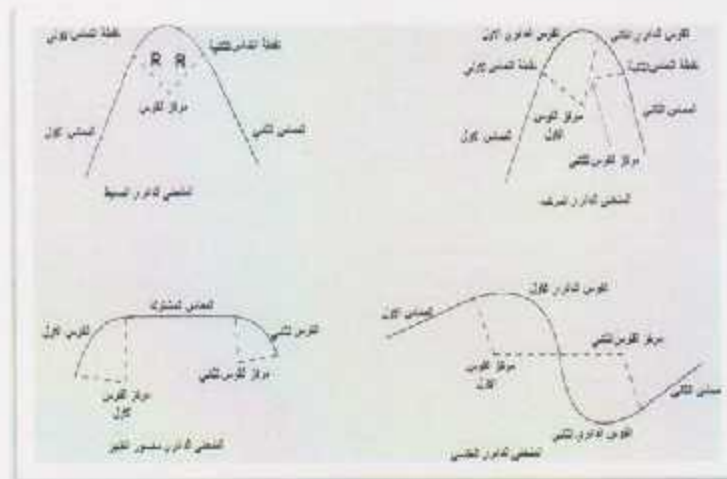 نقطة التماس الثانية
R R
مركز القوس
المماس الاول
المماس الثاني
المنحني الدائري البسيط
القوس الدائري الاول
القوس الدائري الثاني
نقطة التماس الاولى
نقطة التماس الثانية
مركز القوس
الاول
المماس الاول
المماس الثاني
مركز القوس الثاني
المنحني الدائري المركب
المماس المشترك
القوس الاول
القوس الثاني
مركز القوس
الاول
مركز القوس الثاني
المنحني الدائري
القوس الدائري الاول
المماس الاول
مركز القوس الثاني
مركز القوس
الاول
القوس الدائري الثاني
المنحني الدائري العكسي